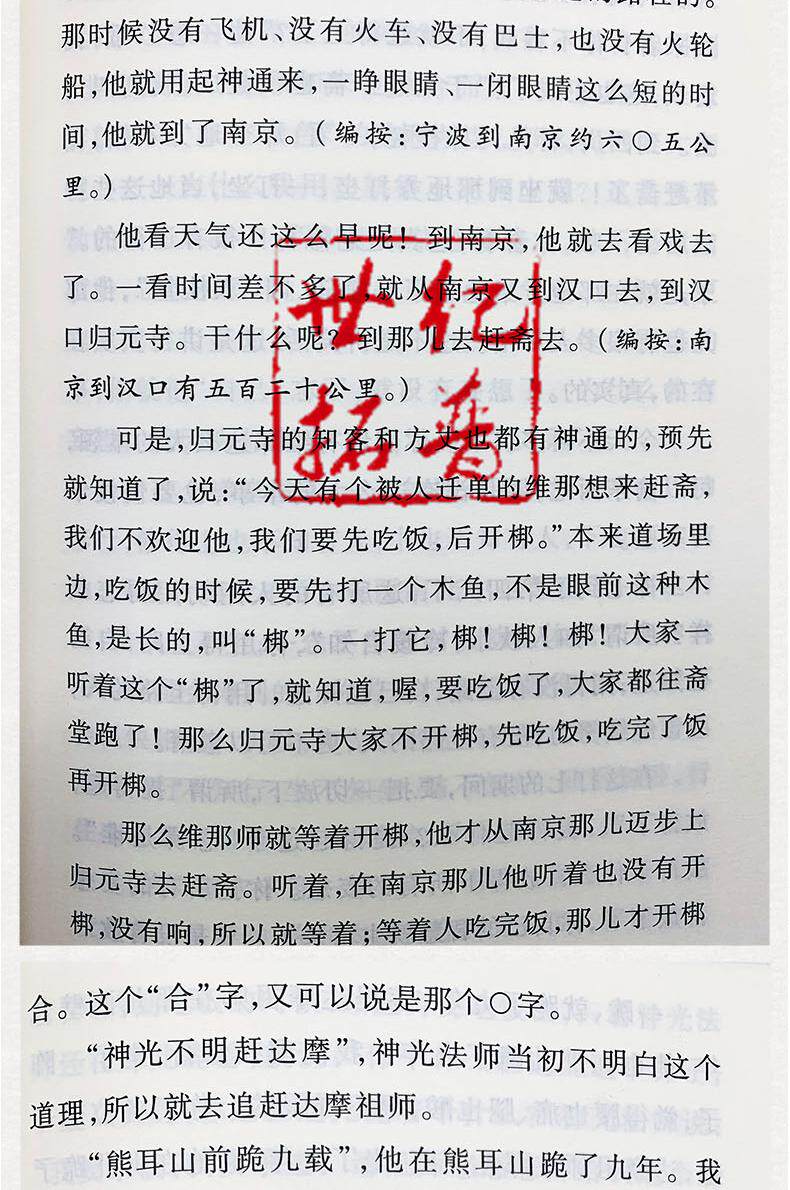 那时候没有飞机、没有火车、没有巴士，也没有火轮
船，他就用起神通来，一睁眼睛、一闭眼睛这么短的时
间，他就到了南京。（编按：宁波到南京约六〇五公
里。）
他看天气还这么早呢！到南京，他就去看戏去
了。一看时间差不多了，就从南京又到汉口去，到汉
口归元寺。干什么呢？到那儿去赶斋去。（编按：南
京到汉口有五百二十公里。）
可是，归元寺的知客和方丈也都有神通的，预先
就知道了，说：“今天有个被人迁单的维那想来赶斋，
我们不欢迎他，我们要先吃饭，后开梆。”本来道场里
边，吃饭的时候，要先打一个木鱼，不是眼前这种木
鱼，是长的，叫“梆”。一打它，梆！梆！梆！大家一
听着这个“梆”了，就知道，喔，要吃饭了，大家都往斋
堂跑了！那么归元寺大家不开梆，先吃饭，吃完了饭
再开梆。
那么维那师就等着开梆，他才从南京那儿迈步上
归元寺去赶斋。听着，在南京那儿他听着也没有开
梆，没有响，所以就等着；等着人吃完饭，那儿才开梆
世纪
拓普
合。这个“合”字，又可以说是那个〇字。
“神光不明赶达摩”，神光法师当初不明白这个
道理，所以就去追赶达摩祖师。
“熊耳山前跪九载”，他在熊耳山跪了九年。我